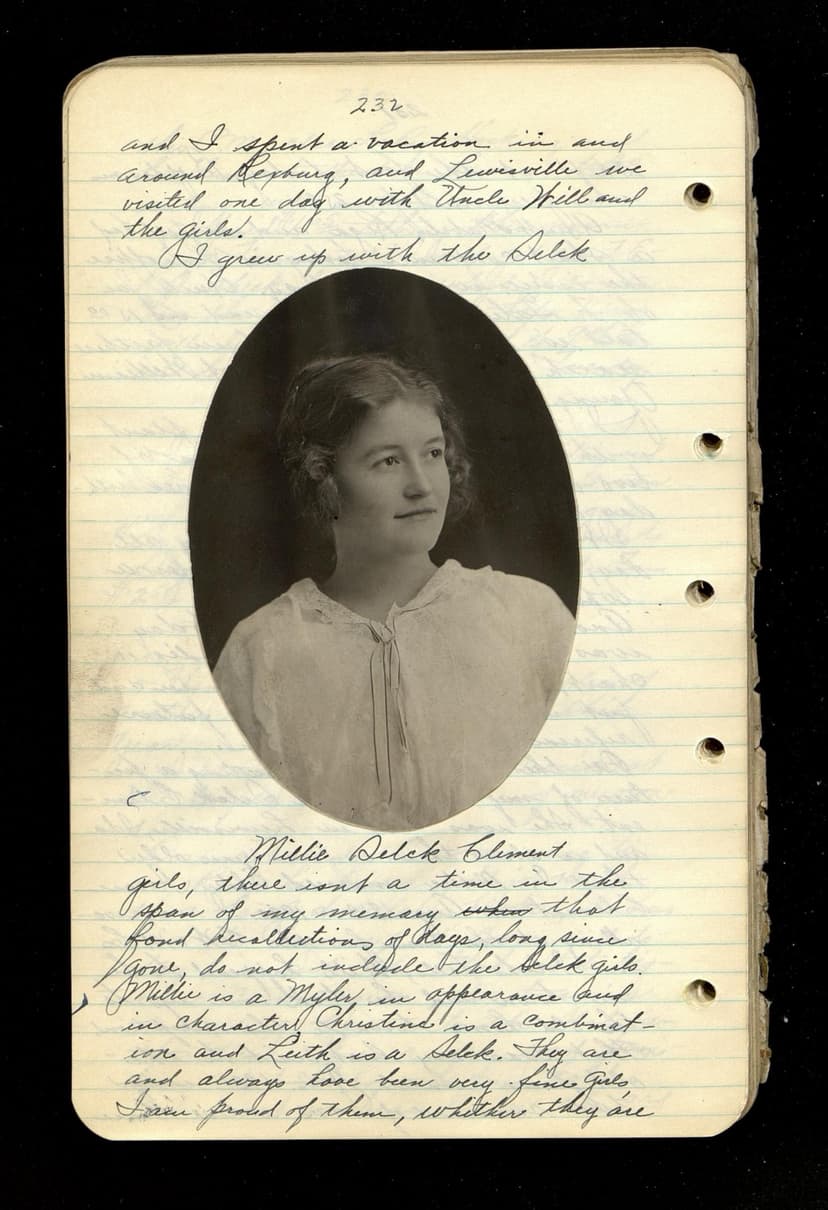 232
and I spent a vacation in and
around Rexburg, and Lewisville we
visited one day with Uncle Will and
the girls.
I grew up with the Selck
Millie Selck Clement
girls, there isnt a time in the
span of my memory when that
fond recollections of days, long since
gone, do not include the Selck girls.
Millie is a Myler in appearance and
in character, Christine is a combinat-
ion and Leith is a Selck. They are
and always have been very fine girls,
I am proud of them, whether they are